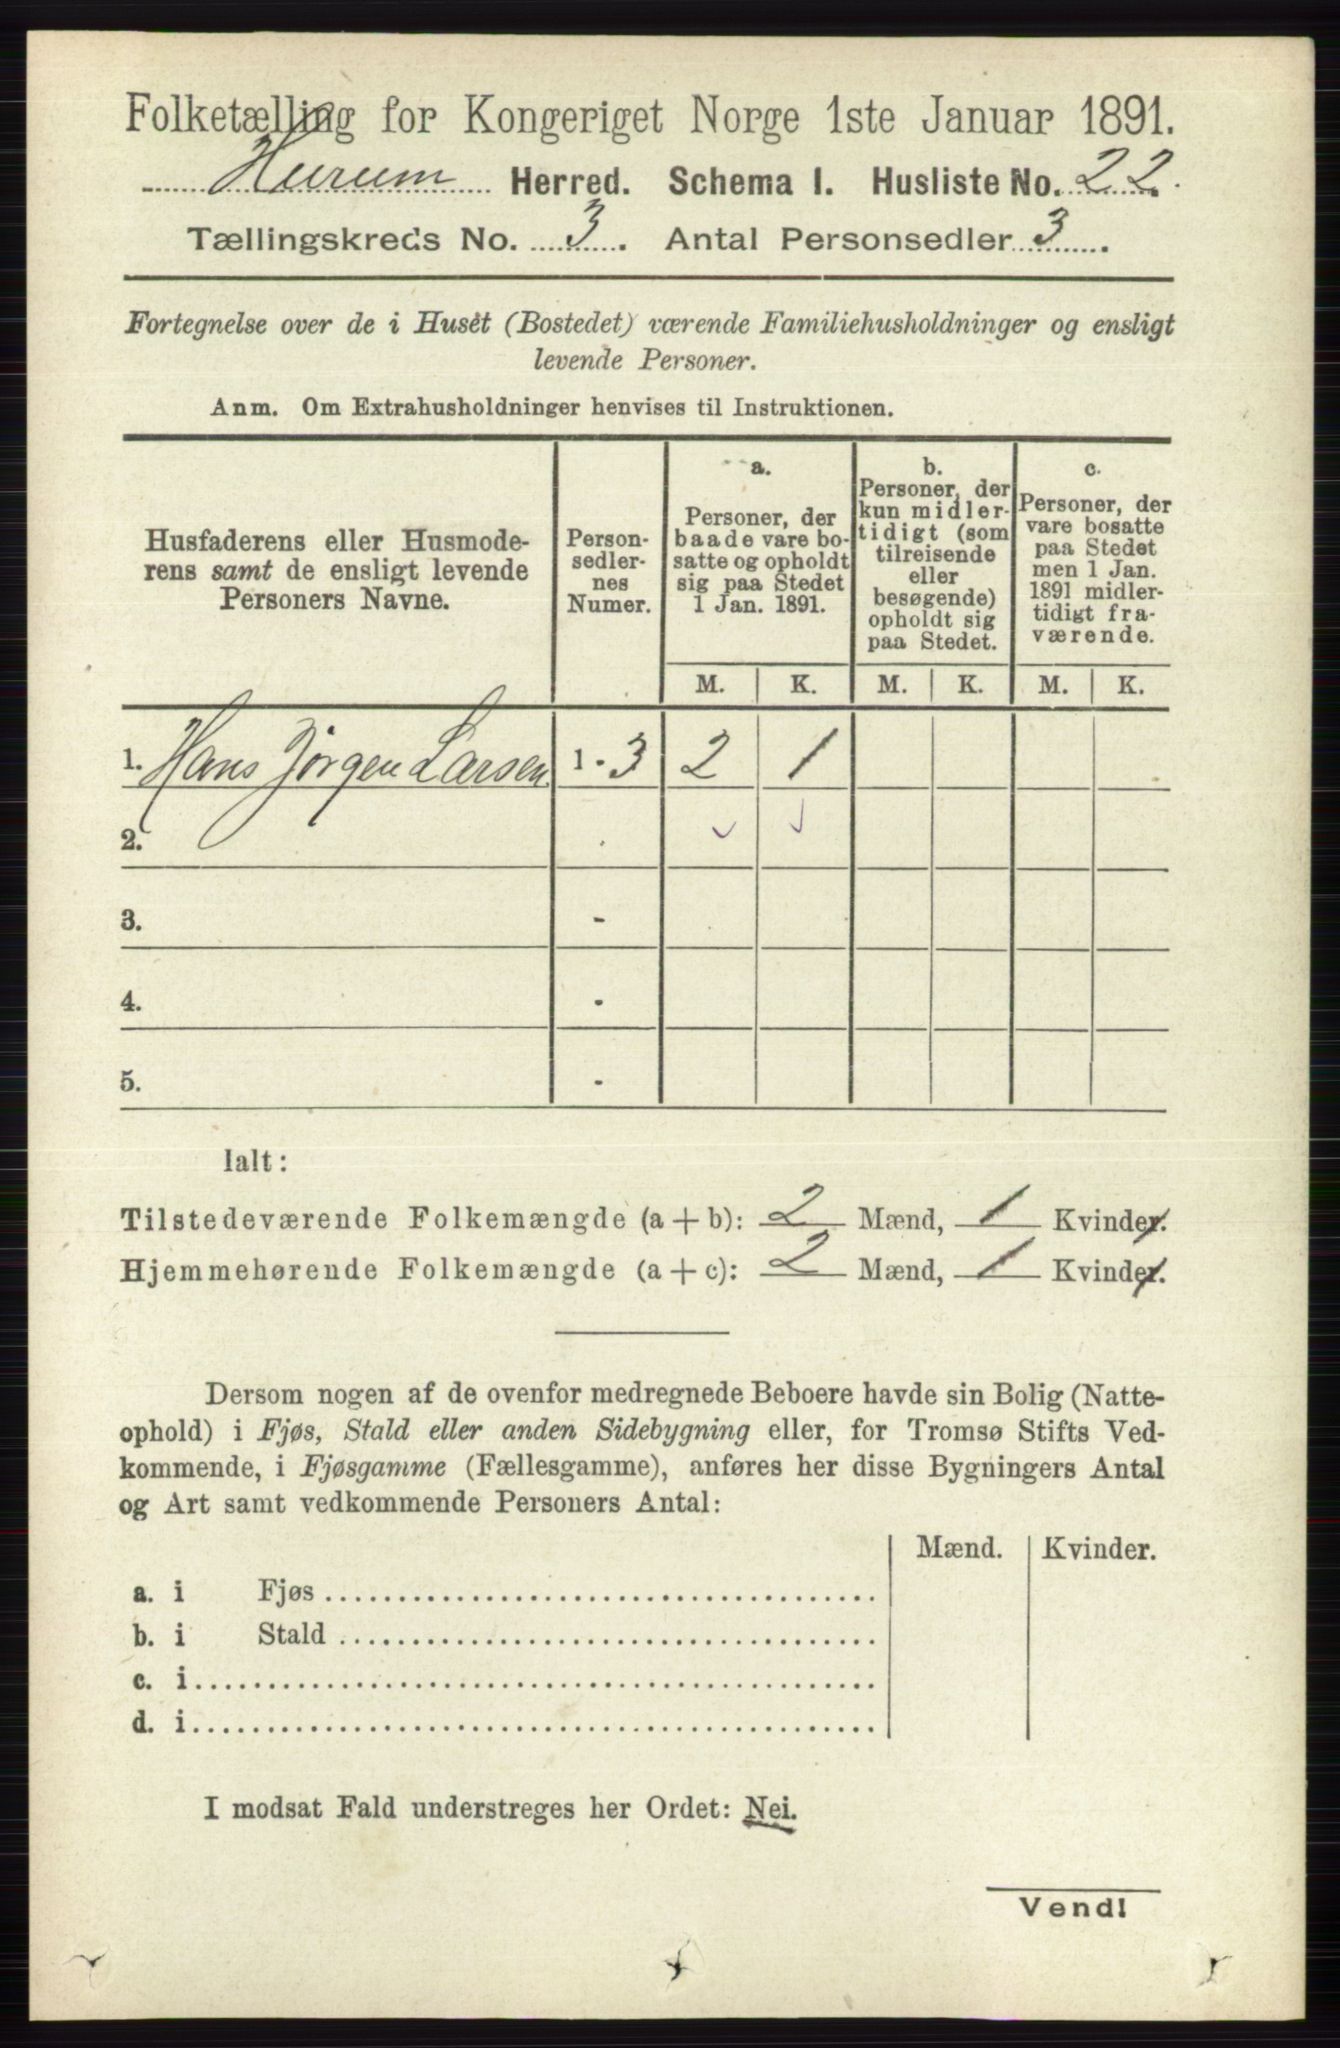 Folketælling for Kongeriget Norge 1ste Januar 1891.
Hurum Herred. Schema I. Husliste No. 22.
Tællingskreds No. 3. Antal Personsedler 3.
Fortegnelse over de i Huset (Bostedet) værende Familiehusholdninger og ensligt
levende Personer.
Anm. Om Extrahusholdninger henvises til Instruktionen.
Husfaderens eller Husmode-
rens samt de ensligt levende
Personers Navne.
Person-
sedler-
nes
Numer.
a.
Personer, der
baade vare bo-
satte og opholdt
sig paa Stedet
1 Jan. 1891.
b.
Personer, der
kun midler-
tidigt (som
tilreisende
eller
besøgende)
opholdt sig
paa Stedet.
c.
Personer, der
vare bosatte
paa Stedet
men 1 Jan.
1891 midler-
tidigt fra-
værende.
M. K. M. K. M. K.
1. Hans Jørgen Larsen 1 - 3 2 1
2.
3. -
4. -
5. -
Ialt:
Tilstedeværende Folkemængde (a + b): 2 Mænd, 1 Kvinder.
Hjemmehørende Folkemængde (a + c): 2 Mænd, 1 Kvinder.
Dersom nogen af de ovenfor medregnede Beboere havde sin Bolig (Natte-
ophold) i Fjøs, Stald eller anden Sidebygning eller, for Tromsø Stifts Ved-
kommende, i Fjøsgamme (Fællesgamme), anføres her disse Bygningers Antal
og Art samt vedkommende Personers Antal:
Mænd. Kvinder.
a. i Fjøs
b. i Stald
c. i
d. i
I modsat Fald understreges her Ordet: Nei.
Vend!